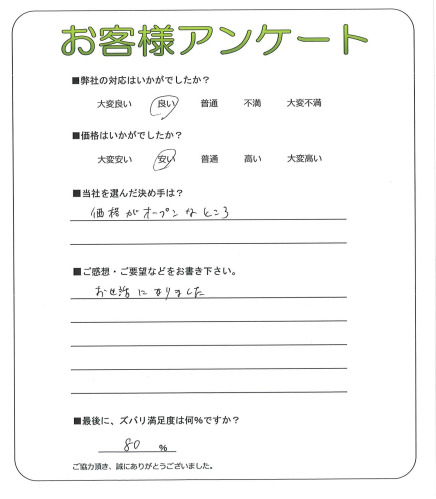 お客様アンケート
■弊社の対応はいかがでしたか？
大変良い 良い 普通 不満 大変不満
■価格はいかがでしたか？
大変安い 安い 普通 高い 大変高い
■当社を選んだ決め手は？
価格がオープンなところ
■ご感想・ご要望などをお書き下さい。
お世話になりました
■最後に、ズバリ満足度は何％ですか？
80 ％
ご協力頂き、誠にありがとうございました。